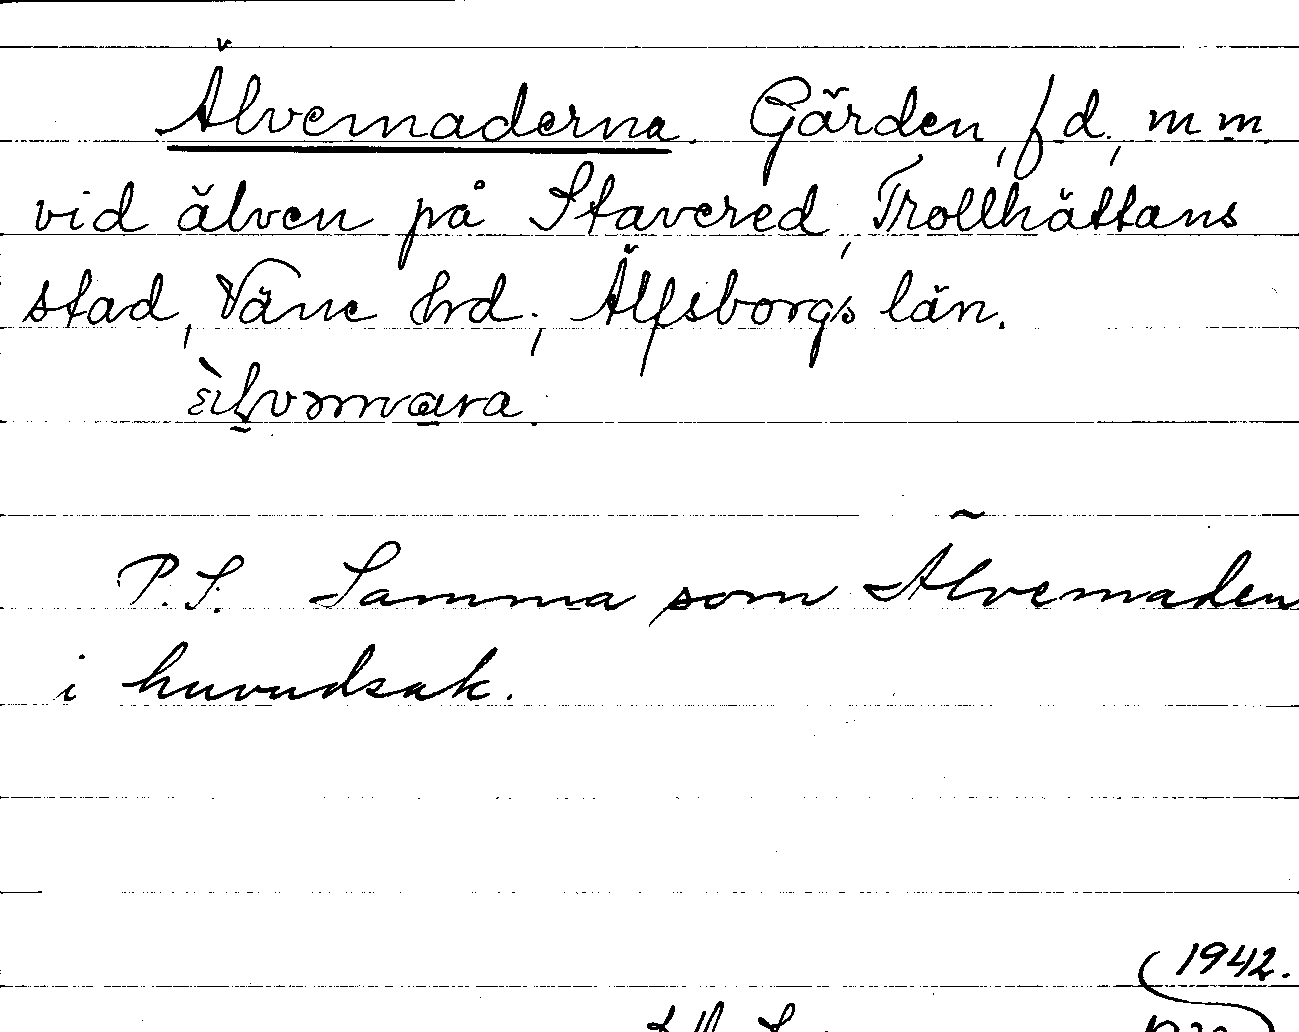 Älvemaderna. Gärden, f.d., m.m.
vid älven på Stavered, Trollhättans
stad, Väne hrd., Älfsborgs län.
P.S. Samma som Älvemaden
i huvudsak.
1942.